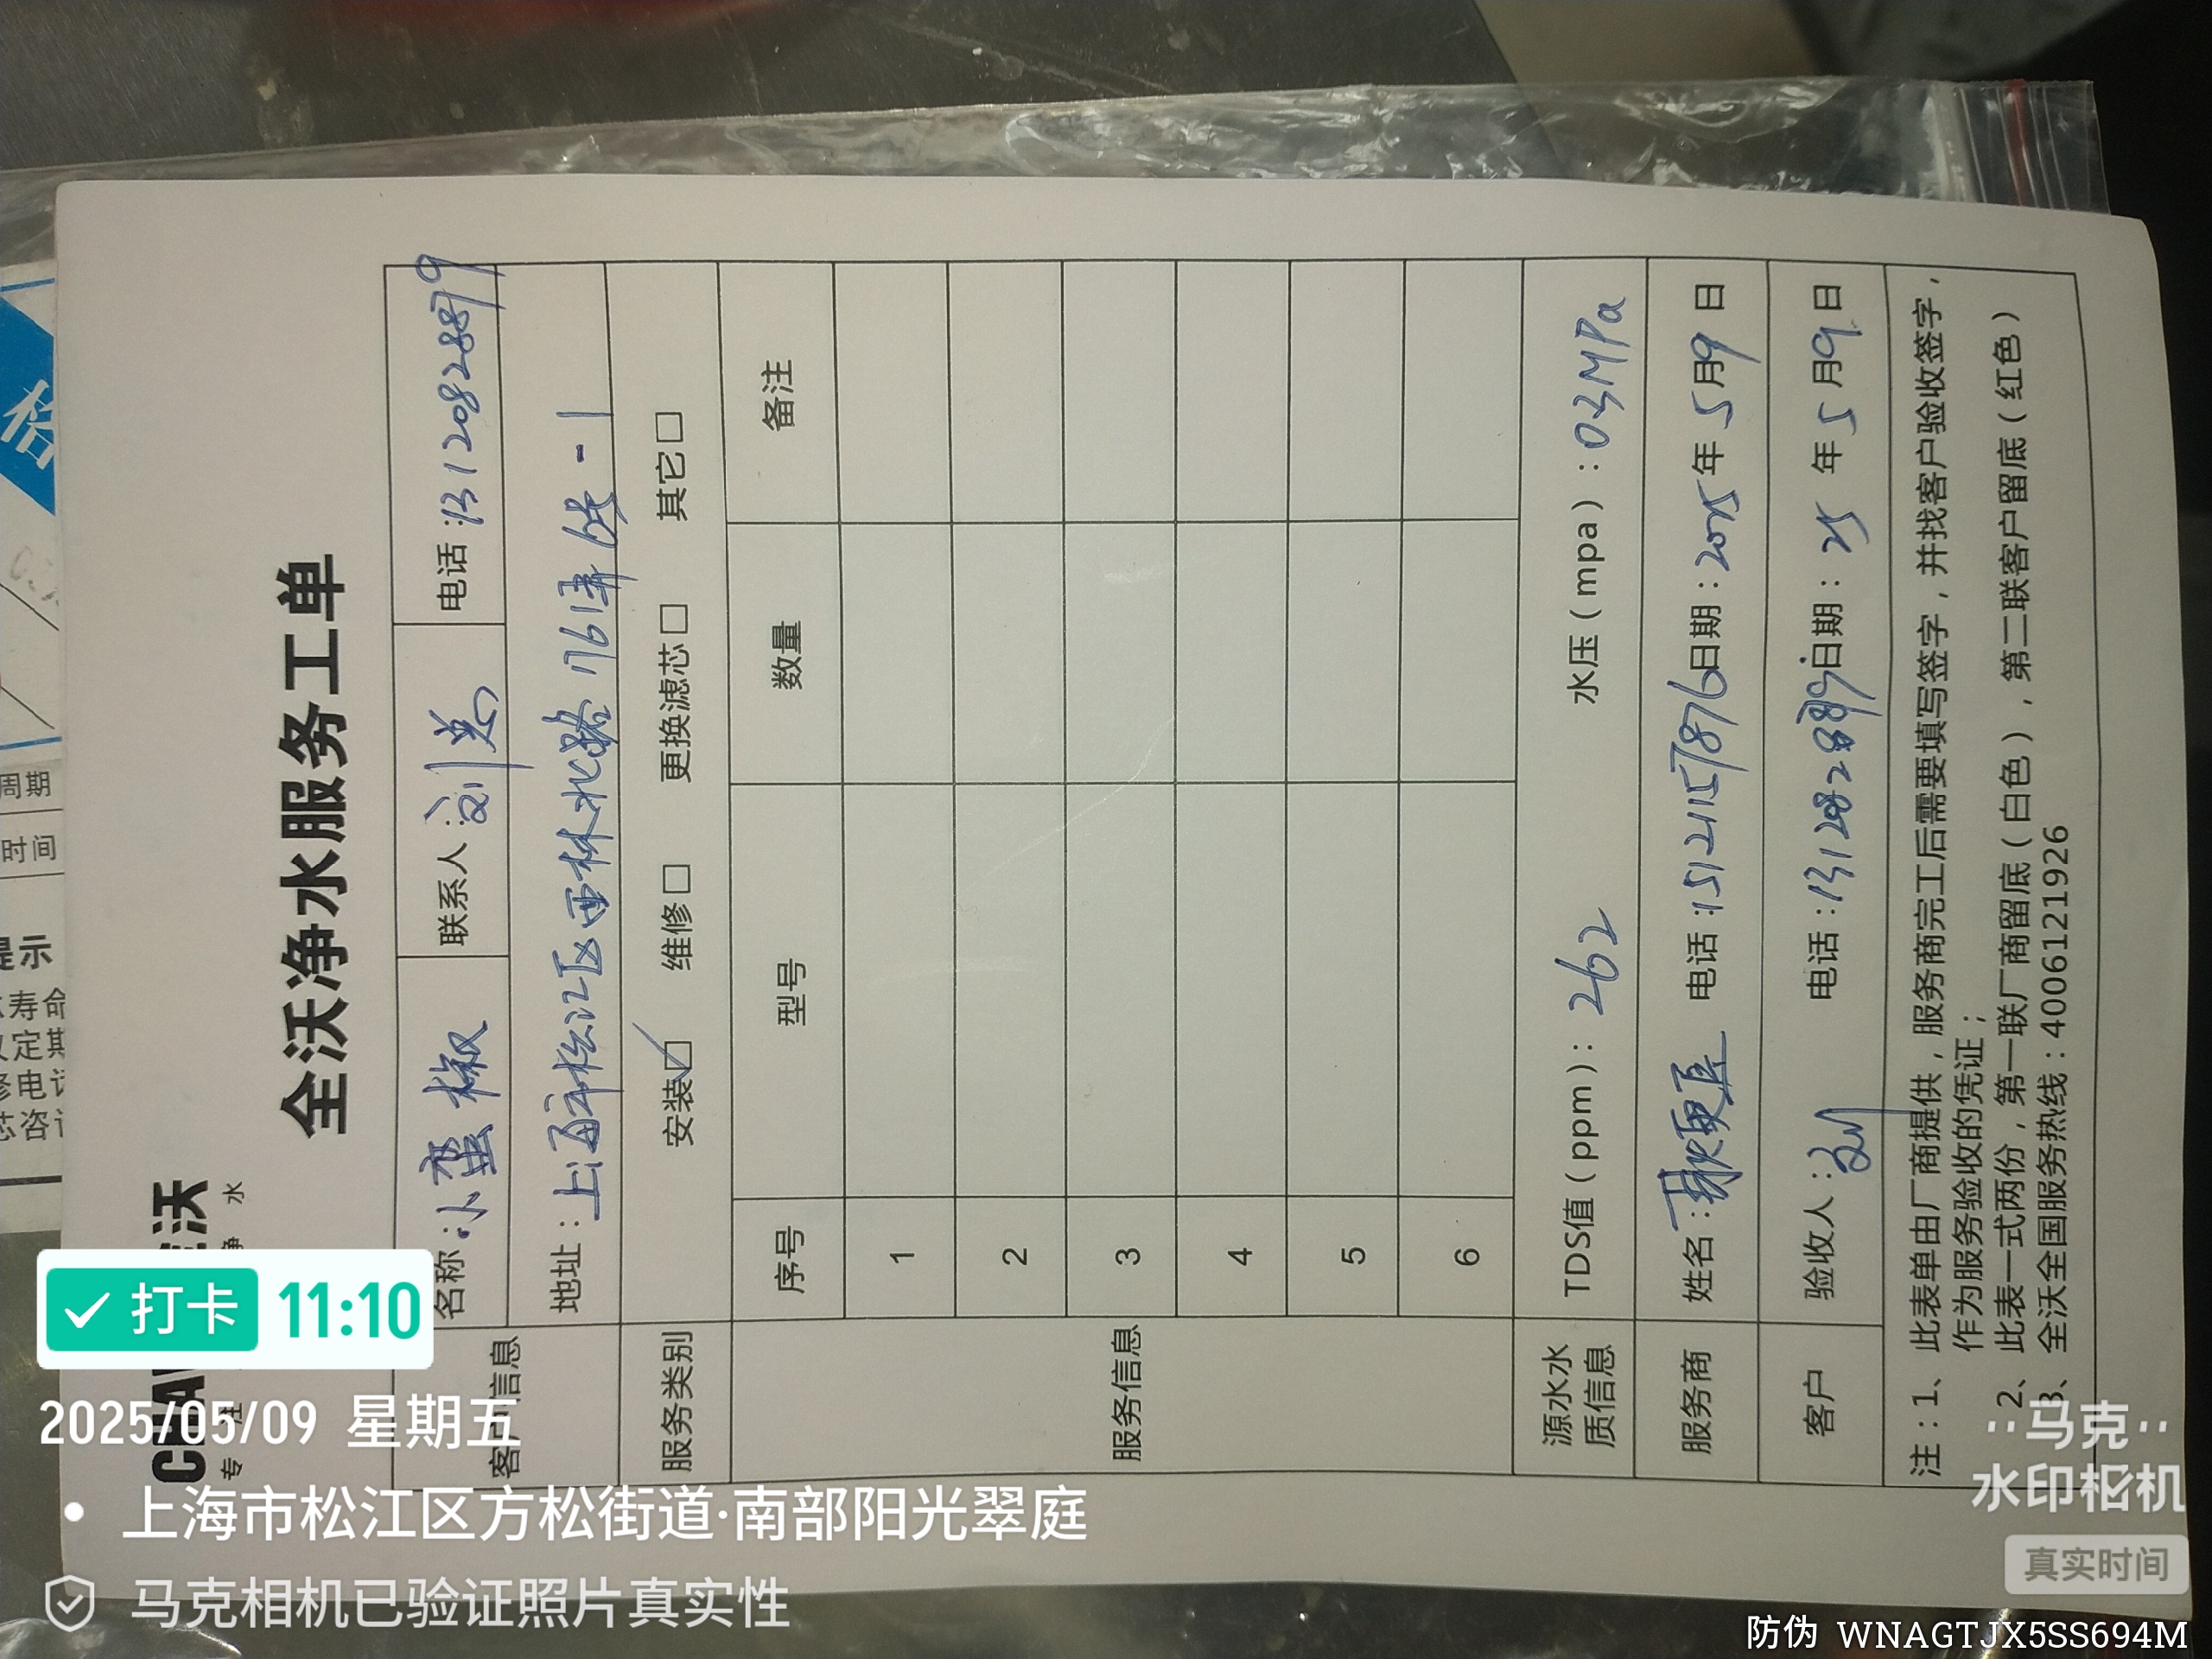 全沃净水服务工单
专 注 净 水
客户信息
名称：小蛮椒 联系人：刘总 电话：13120828899
地址：上海市松江区西林北路1761弄 -1
服务类别 安装☑ 维修□ 更换滤芯□ 其它□
服务信息
序号 型号 数量 备注
1
2
3
4
5
6
源水水质信息 TDS值（ppm）：262 水压（mpa）：0.3MPa
服务商 姓名： 电话：15121157876 日期：2025年5月9日
客户 验收人：刘 电话： 日期：25年5月9日
注：1、此表单由厂商提供，服务商完工后需要填写签字，并找客户验收签字，
作为服务验收的凭证；
2、此表一式两份，第一联厂商留底（白色），第二联客户留底（红色）
3、全沃全国服务热线：4006121926
格
周期
时间
提示
寿命
定期
修电话
芯咨
打卡 11:10
2025/05/09 星期五
上海市松江区方松街道·南部阳光翠庭
马克相机已验证照片真实性
马克
水印相机
真实时间
防伪 WNAGTJX5SS694M